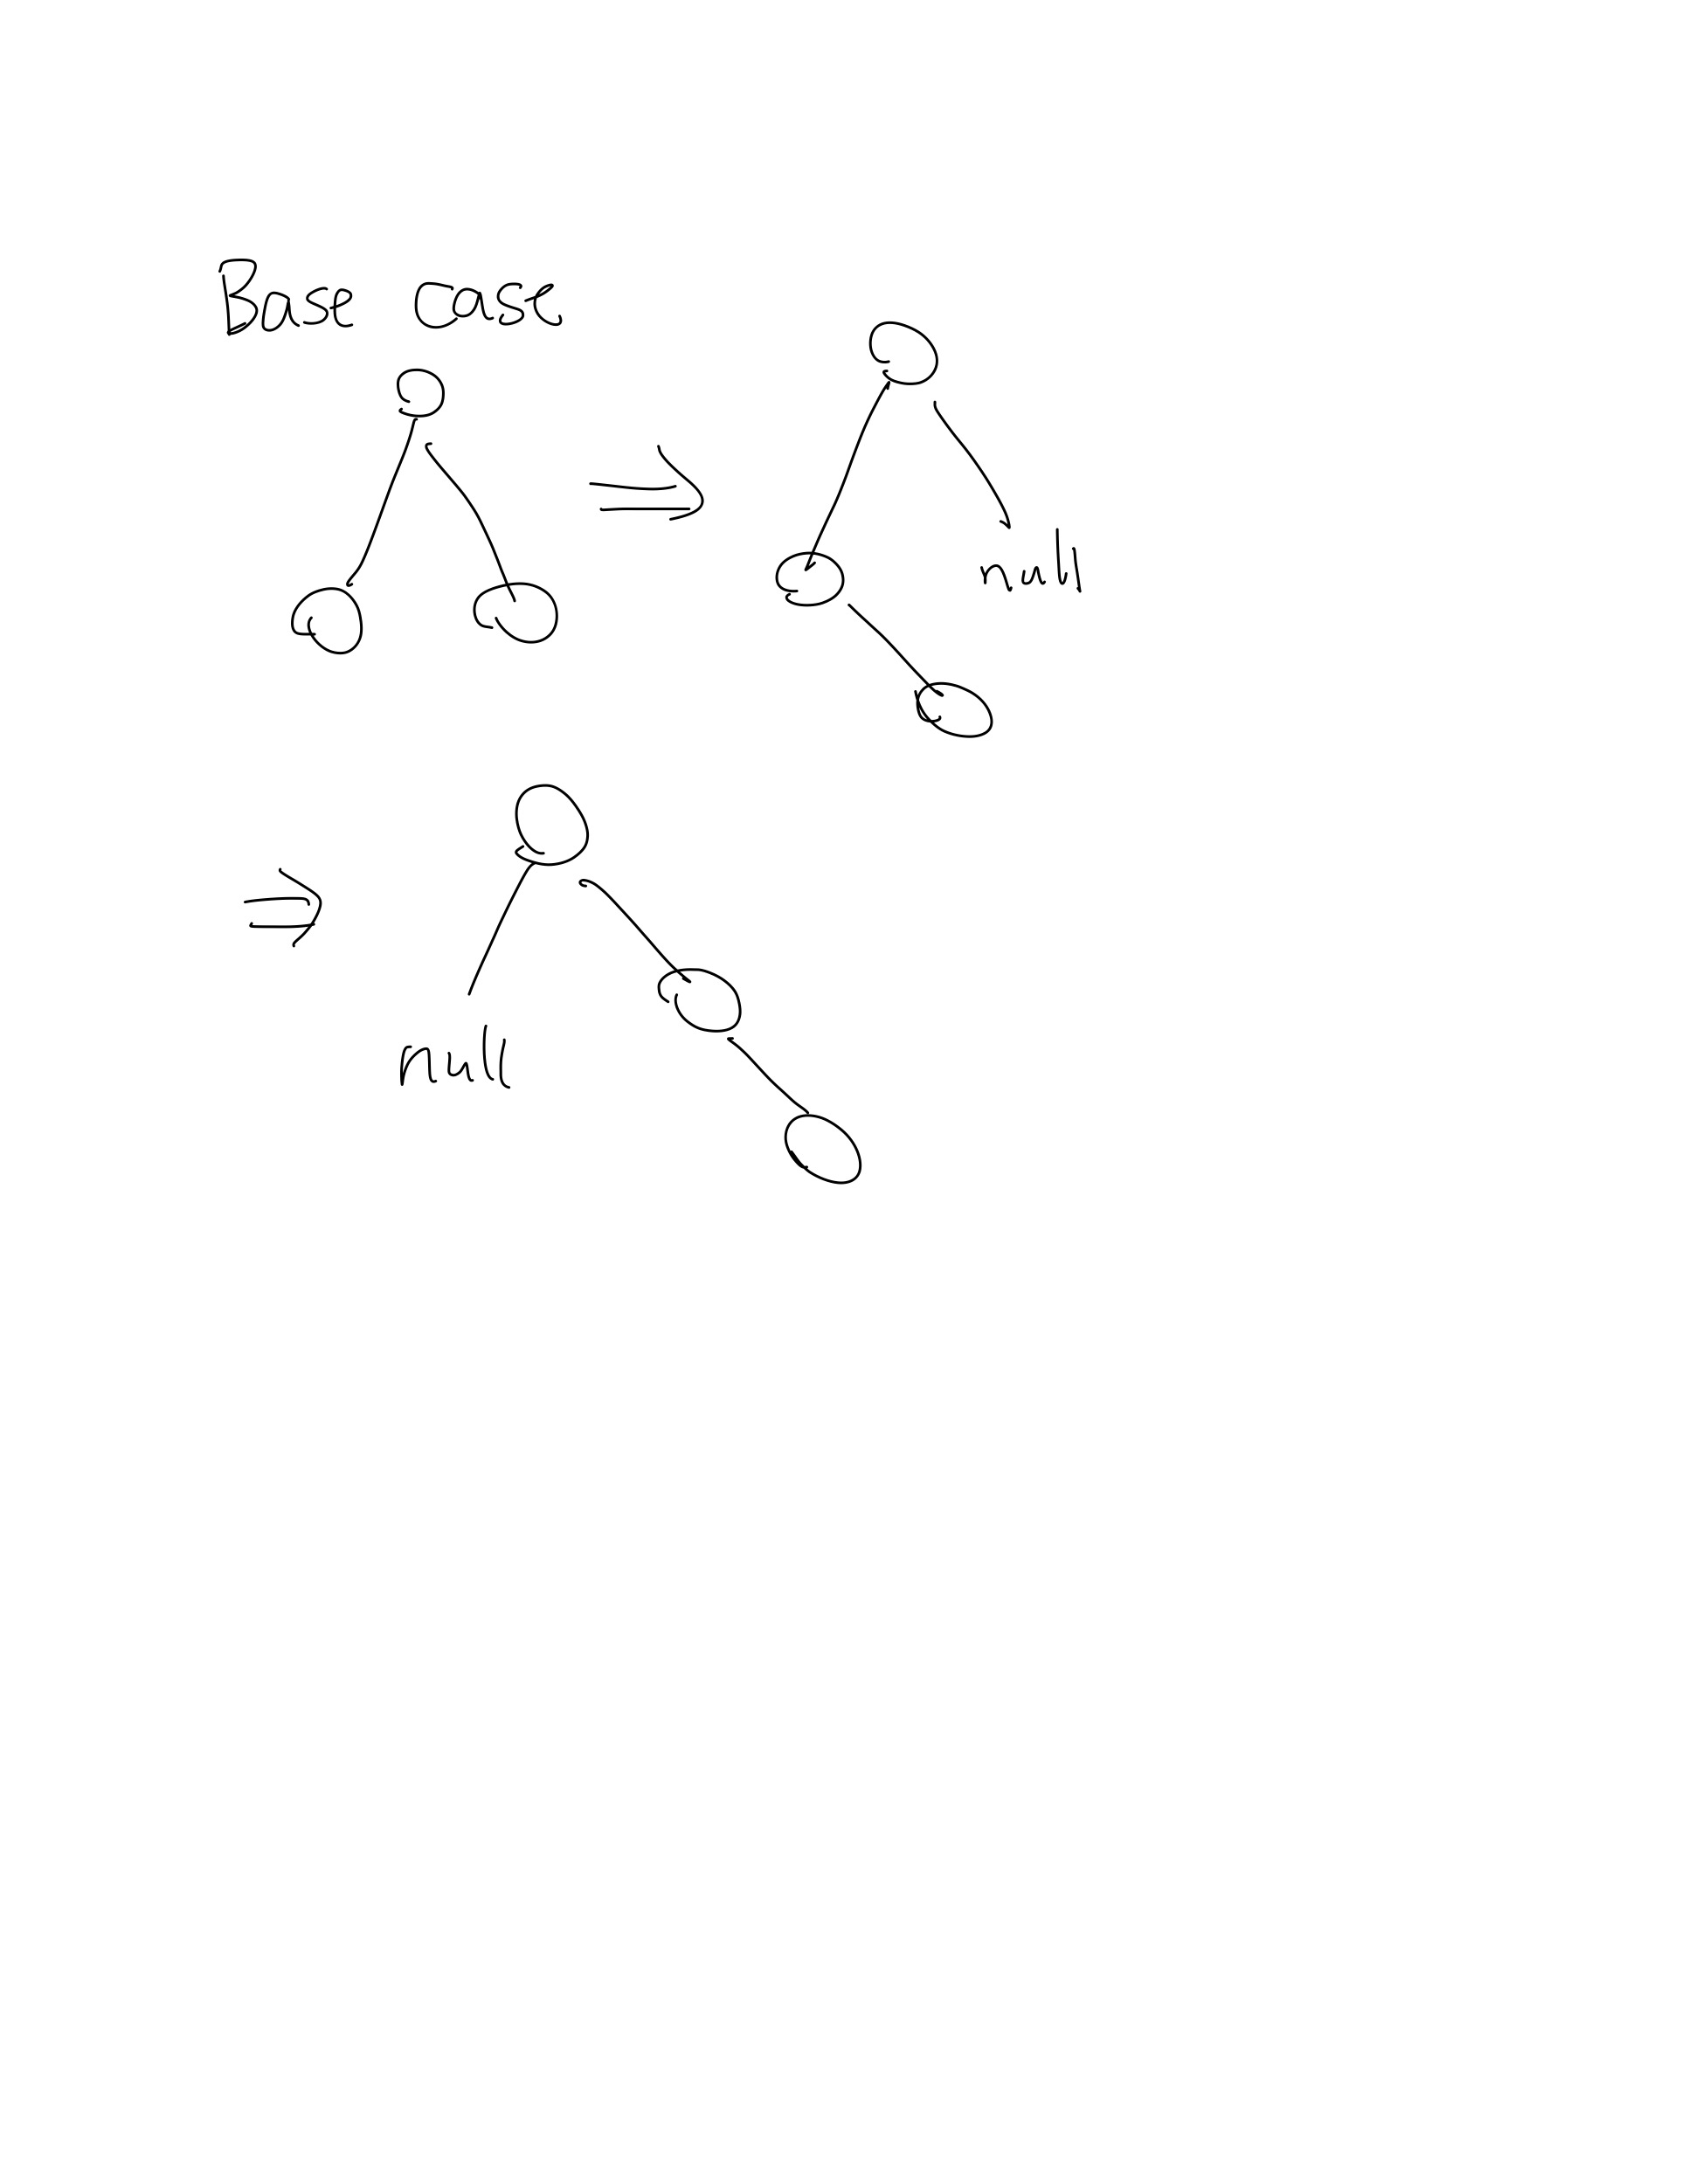 Base case
null
null